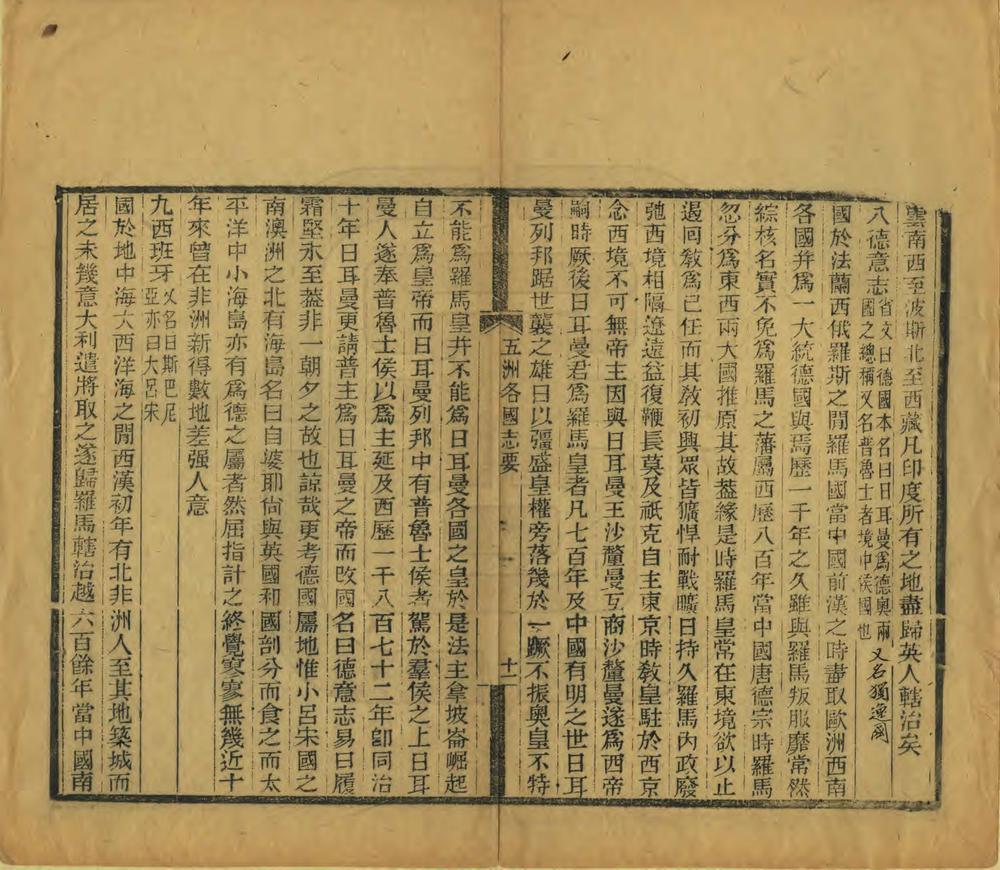 雲南西至波斯北至西藏凡印度所有之地盡歸英人轄治矣
八德意志省文曰德國本名曰日耳曼為德奧兩國之總稱又名普魯士者境中侯國也又名獨逸國
國於法蘭西俄羅斯之閒羅馬國當中國前漢之時盡取歐洲西南
各國并為一大統德國與焉歷一千年之久雖與羅馬叛服靡常然
綜核名實不免為羅馬之藩屬西歷八百年當中國唐德宗時羅馬
忽分為東西兩大國推原其故蓋緣是時羅馬皇常在東境欲以止
遏回敎為已任而其敎初興眾皆獷悍耐戰曠日持久羅馬內政廢
弛西境相隔遼遠益復鞭長莫及祇克自主東京時敎皇駐於西京
念西境不可無帝主因與日耳曼王沙釐曼互商沙釐曼遂為西帝
嗣時厥後日耳曼君為羅馬皇者凡七百年及中國有明之世日耳
曼列邦踞世襲之雄日以彊盛皇權旁落幾於一蹶不振奧皇不特
五洲各國志要
十一
不能為羅馬皇并不能為日耳曼各國之皇於是法主拿坡崙崛起
自立為皇帝而日耳曼列邦中有普魯士侯者駕於羣侯之上日耳
曼人遂奉普魯士侯以為主延及西歷一千八百七十二年卽同治
十年日耳曼更請普主為日耳曼之帝而改國名曰德意志易曰履
霜堅氷至蓋非一朝夕之故也諒哉更考德國屬地惟小呂宋國之
南澳洲之北有海島名曰自婆耶尙與英國和國剖分而食之而太
平洋中小海島亦有為德之屬者然屈指計之終覺寥寥無幾近十
年來曾在非洲新得數地差强人意
九西班牙又名曰斯巴尼亞亦曰大呂宋
國於地中海大西洋海之閒西漢初年有北非洲人至其地築城而
居之未幾意大利遣將取之遂歸羅馬轄治越六百餘年當中國南